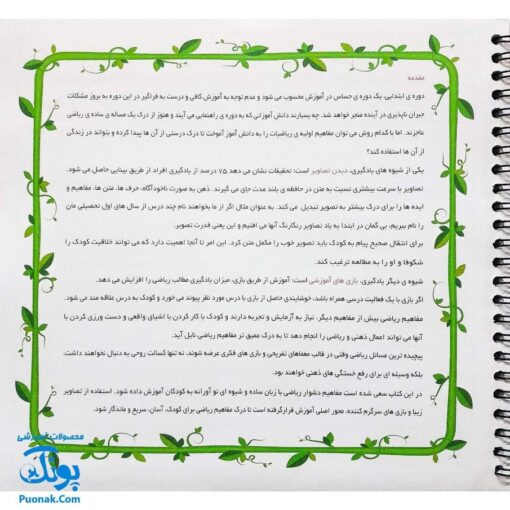 مقدمه
دوره ی ابتدایی، یک دوره ی حساس در آموزش محسوب می شود و عدم توجه به آموزش کافی و درست به فراگیر در این دوره به بروز مشکلات
جبران ناپذیری در آینده منجر خواهد شد. چه بسیارند دانش آموزانی که به دوره ی راهنمایی می آیند و هنوز از درک یک مسأله ی ساده ی ریاضی
عاجزند. اما با کدام روش می توان مفاهیم اولیه ی ریاضیات را به دانش آموز آموخت تا درک درستی از آن ها پیدا کرده و بتواند در زندگی
از آن ها استفاده کند؟
یکی از شیوه های یادگیری، دیدن تصاویر است؛ تحقیقات نشان می دهد ۷۵ درصد از یادگیری افراد از طریق بینایی حاصل می شود.
تصاویر با سرعت بیشتری نسبت به متن در حافظه ی بلند مدت جای می گیرند. ذهن به صورت ناخودآگاه، حرف ها، متن ها، مفاهیم و
ایده ها را برای درک بیشتر به تصویر تبدیل می کند. به عنوان مثال اگر از ما بخواهند نام چند درس از سال های اول تحصیلی مان
را نام ببریم، بی گمان در ابتدا به یاد تصاویر رنگارنگ آنها می افتیم و این یعنی قدرت تصویر.
برای انتقال صحیح پیام به کودک باید تصویر خوب را مکمل متن کرد. این امر تا آنجا اهمیت دارد که می تواند خلاقیت کودک را
شکوفا و او را به مطالعه ترغیب کند.
شیوه ی دیگر یادگیری، بازی های آموزشی است؛ آموزش از طریق بازی، میزان یادگیری مطالب ریاضی را افزایش می دهد.
اگر بازی با یک فعالیت درسی همراه باشد، خوشایندی حاصل از بازی با درس مورد نظر پیوند می خورد و کودک به درس علاقه مند می شود.
مفاهیم ریاضی بیش از مفاهیم دیگر، نیاز به آزمایش و تجربه دارند و کودک با کار کردن با اشیای واقعی و دست ورزی کردن با
آنها می تواند اعمال ذهنی و ریاضی را انجام دهد تا به درک عمیق تر مفاهیم ریاضی نایل آید.
پیچیده ترین مسائل ریاضی وقتی در قالب معماهای تفریحی و بازی های فکری عرضه شوند، نه تنها کسالت روحی به دنبال نخواهند داشت،
بلکه وسیله ای برای رفع خستگی های ذهنی خواهند بود.
در این کتاب سعی شده است مفاهیم دشوار ریاضی با زبان ساده و شیوه ای نو آورانه به کودکان آموزش داده شود. استفاده از تصاویر
زیبا و بازی های سرگرم کننده، محور اصلی آموزش قرارگرفته است تا درک مفاهیم ریاضی برای کودک، آسان، سریع و ماندگار شود.
محصولات آموزشی
پونک
Puonak.Com